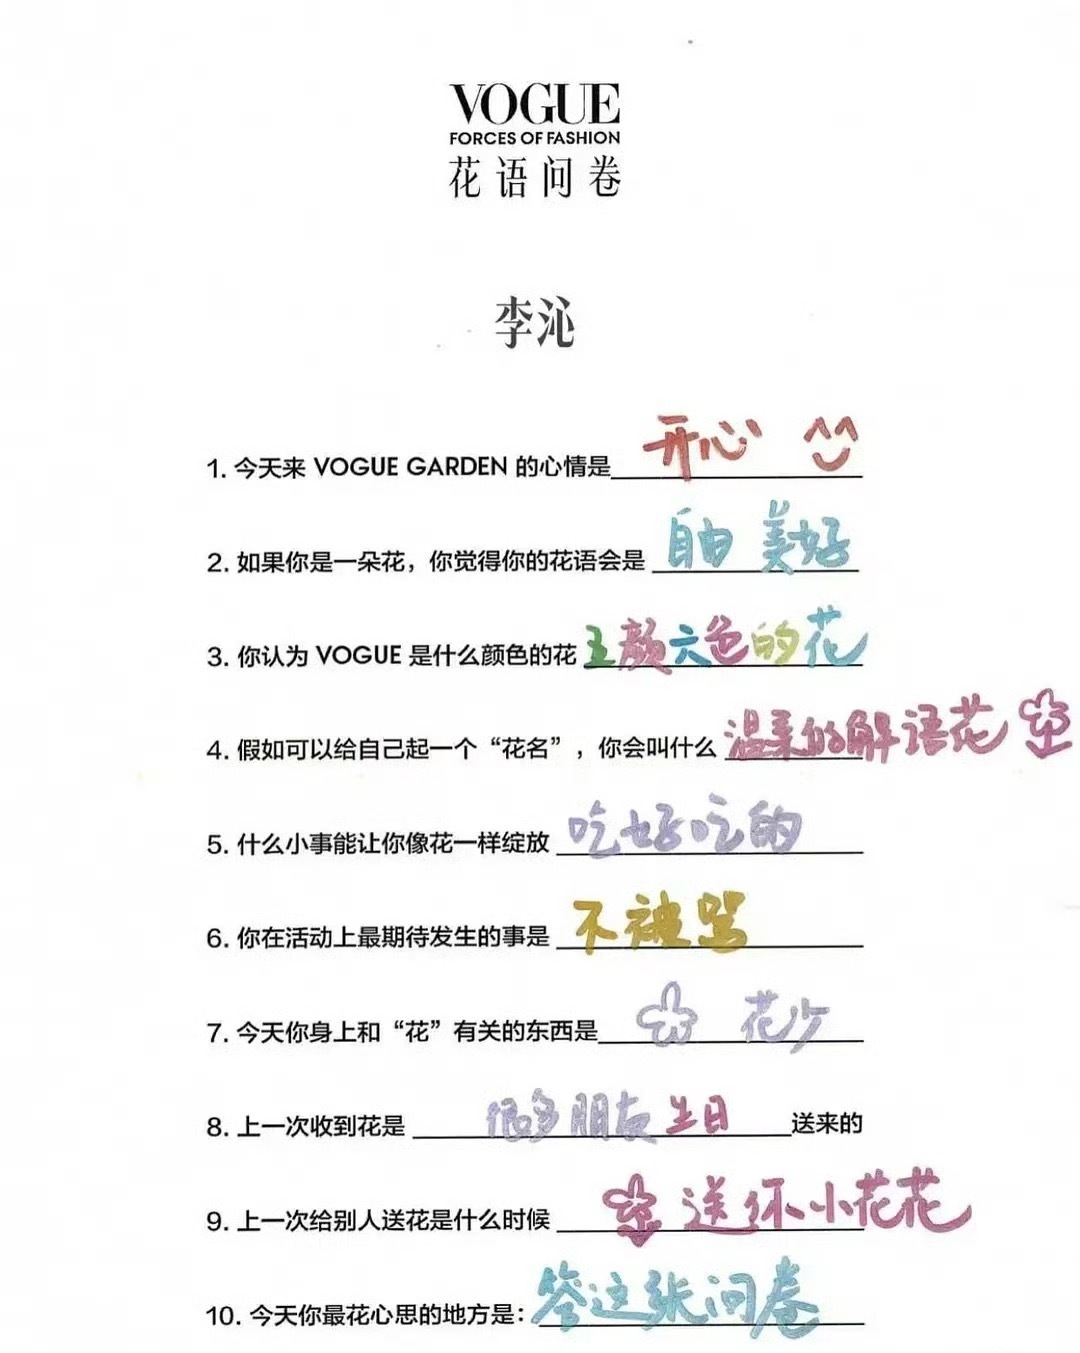 VOGUE
FORCES OF FASHION
花语问卷
李沁
1. 今天来 VOGUE GARDEN 的心情是 开心
2. 如果你是一朵花，你觉得你的花语会是 自由 美好
3. 你认为 VOGUE 是什么颜色的花 五颜六色的花
4. 假如可以给自己起一个“花名”，你会叫什么 温柔的解语花
5. 什么小事能让你像花一样绽放 吃好吃的
6. 你在活动上最期待发生的事是 不被骂
7. 今天你身上和“花”有关的东西是 花少
8. 上一次收到花是 很多朋友生日 送来的
9. 上一次给别人送花是什么时候 送你小花花
10. 今天你最花心思的地方是: 答这张问卷